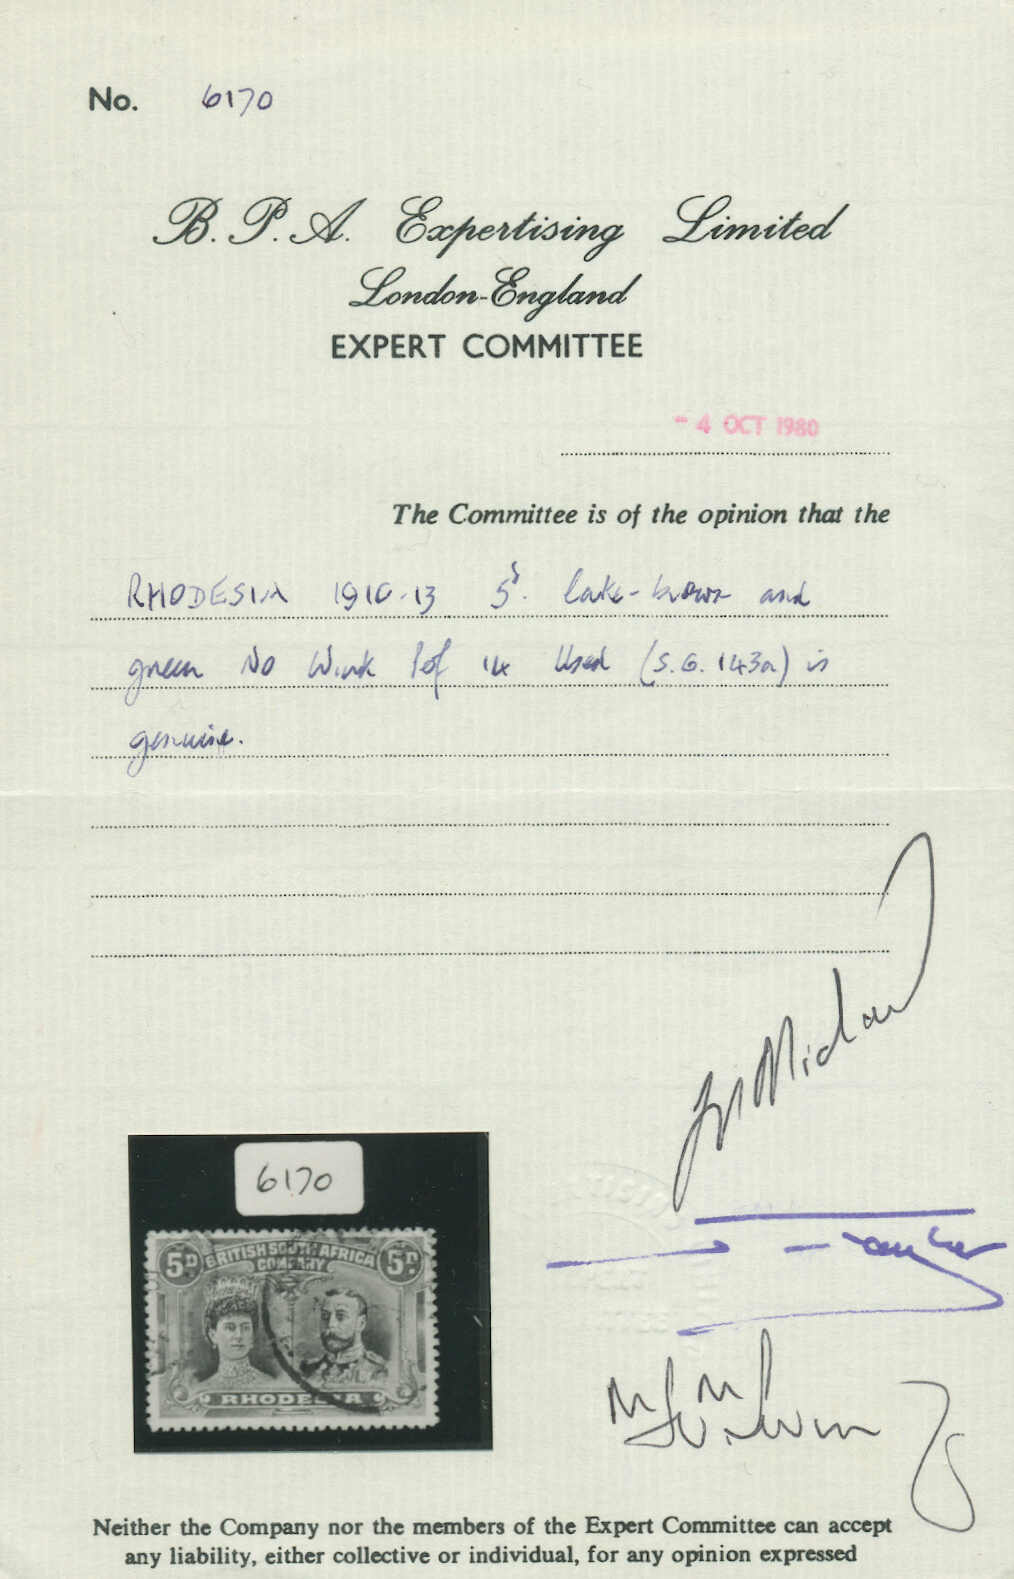 No. 6170
B. P. A. Expertising Limited
London-England
EXPERT COMMITTEE
- 4 OCT 1980
The Committee is of the opinion that the
RHODESIA 1910-13 5d. lake-brown and
green No Wmk Perf 14 Used (S.G. 143a) is
genuine.
6170
5D BRITISH SOUTH AFRICA 5D
COMPANY
RHODESIA
Neither the Company nor the members of the Expert Committee can accept
any liability, either collective or individual, for any opinion expressed